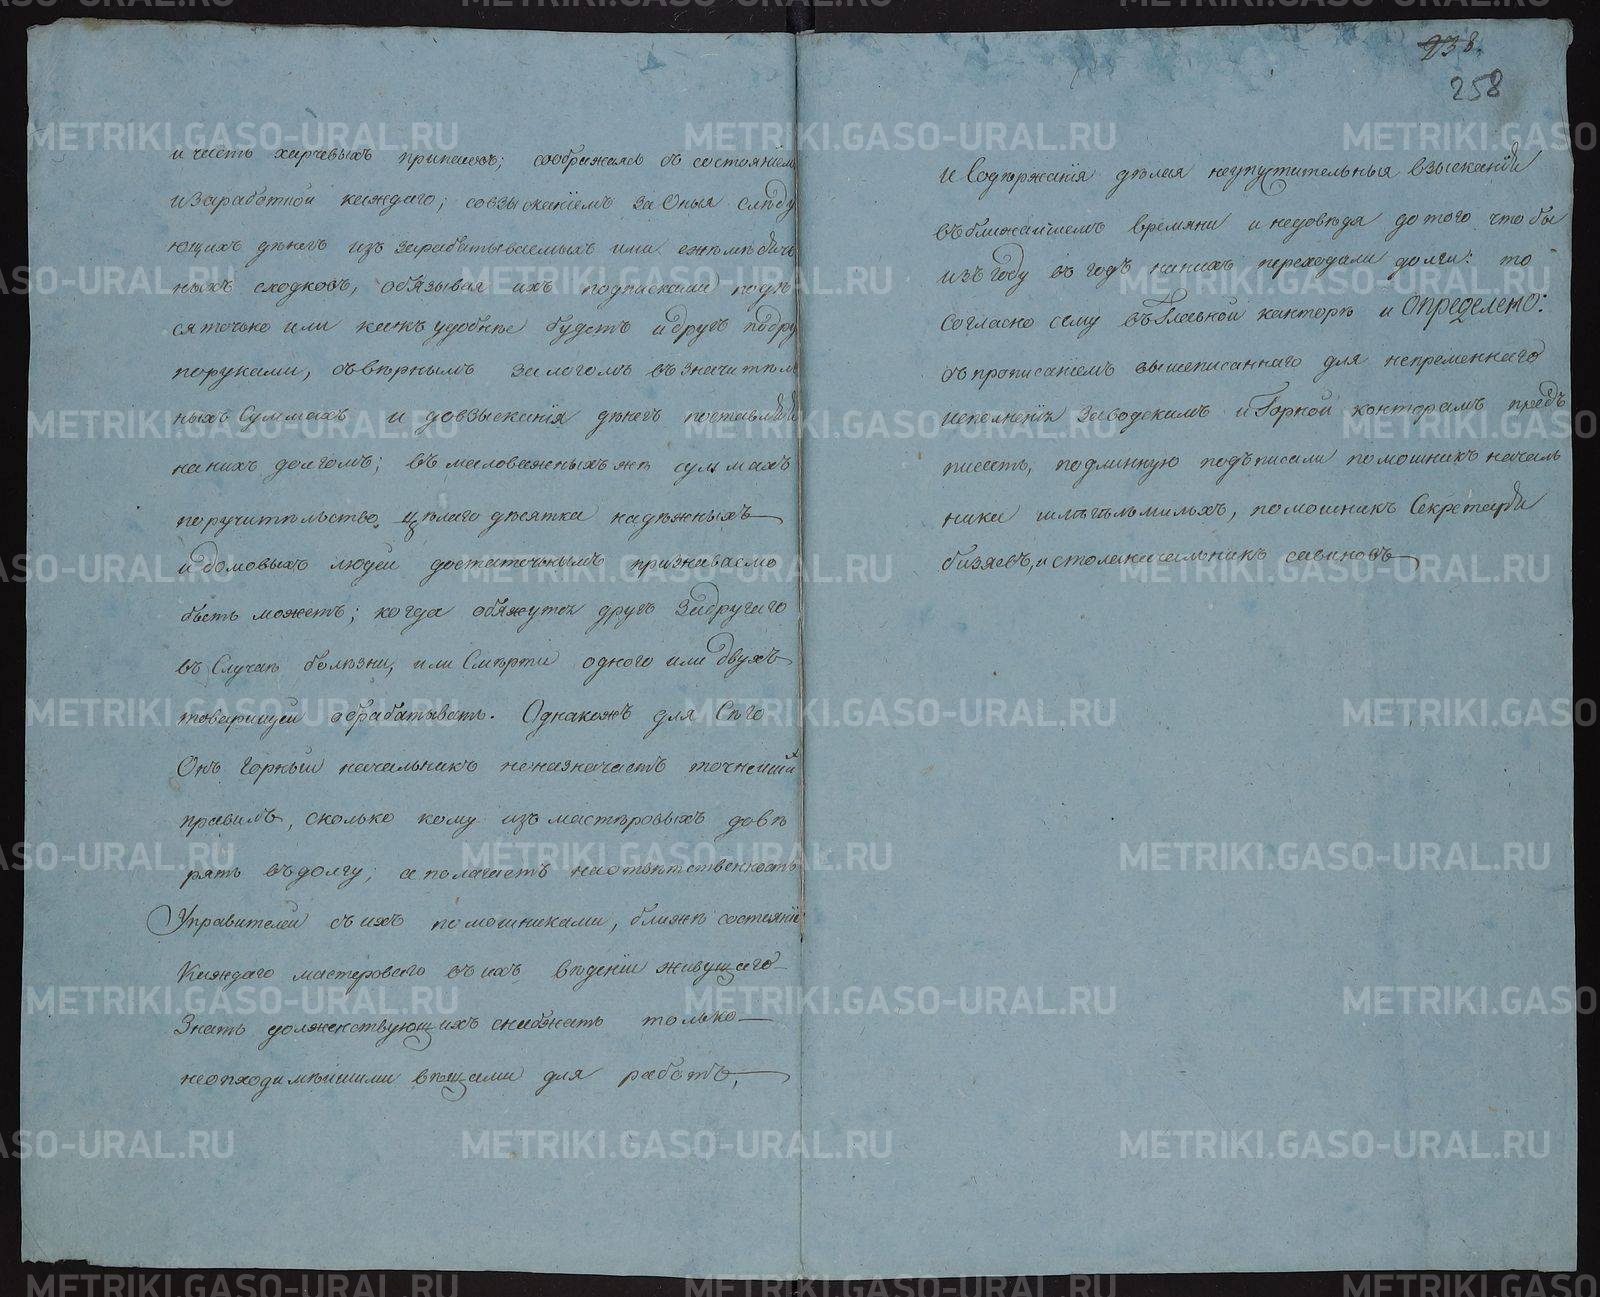 и часть харчевыхъ припасовъ; соображаясь съ состоянiемъ
и заработкой каждаго; со взысканiемъ за Оныя слѣду
ющихъ дѣнегъ изъ зарабатываемыхъ ими ежемѣсяч
ныхъ сходковъ, обязывая ихъ подписками подѣ
сяточно или какъ удобнѣе будетъ и другъ подру
поруками, съ вѣрнымъ залогомъ въ значитель
ныхъ Суммахъ и до взысканiя дѣнегъ поставляя
на нихъ долгомъ; въ маловажныхъ же суммахъ
поручительство цѣлаго дѣсятка надѣжныхъ
и домовыхъ людей достаточнымъ признаваемо
быть можетъ; когда обяжутся другъ за другаго
въ Случаѣ болѣзни, или Смѣрти одного или двухъ
товарищей обрабатывать. Однакожъ для Сего
Онъ Горный начальникъ не назначаетъ точнейшихъ
правилъ, сколько кому изъ мастѣровыхъ довѣ
рять въ долгу; а полагаетъ на отвѣтственность
Управителей съ ихъ помошниками, ближе состоянiе
Каждаго мастероваго въ ихъ вѣденiи живущаго
Знать долженствующихъ снабжать только
неопходимѣишими вѣщами для работъ,
238.
258
и Содѣржанiя дѣлая неупустительныя взысканiи
въ ближайшемъ времяни и недовѣдя до того что бы
изъ году въ годъ на нихъ переходили долги: то
Согласно сему въ Главной канторѣ и Определено:
съ прописанiемъ вышеписаннаго для непременнаго
исполненiя Заводскимъ и Горной конторамъ предъ
писать, подлинную подъписали помошникъ началь
ника помошникъ Секретаря
и столаначальникъ савиновъ